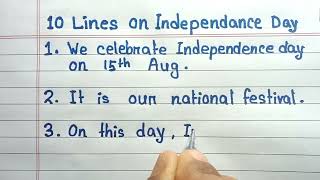 10 Lines on Independance Day
1. We celebrate Independence day
on 15th Aug.
2. It is our national festival.
3. On this day, I